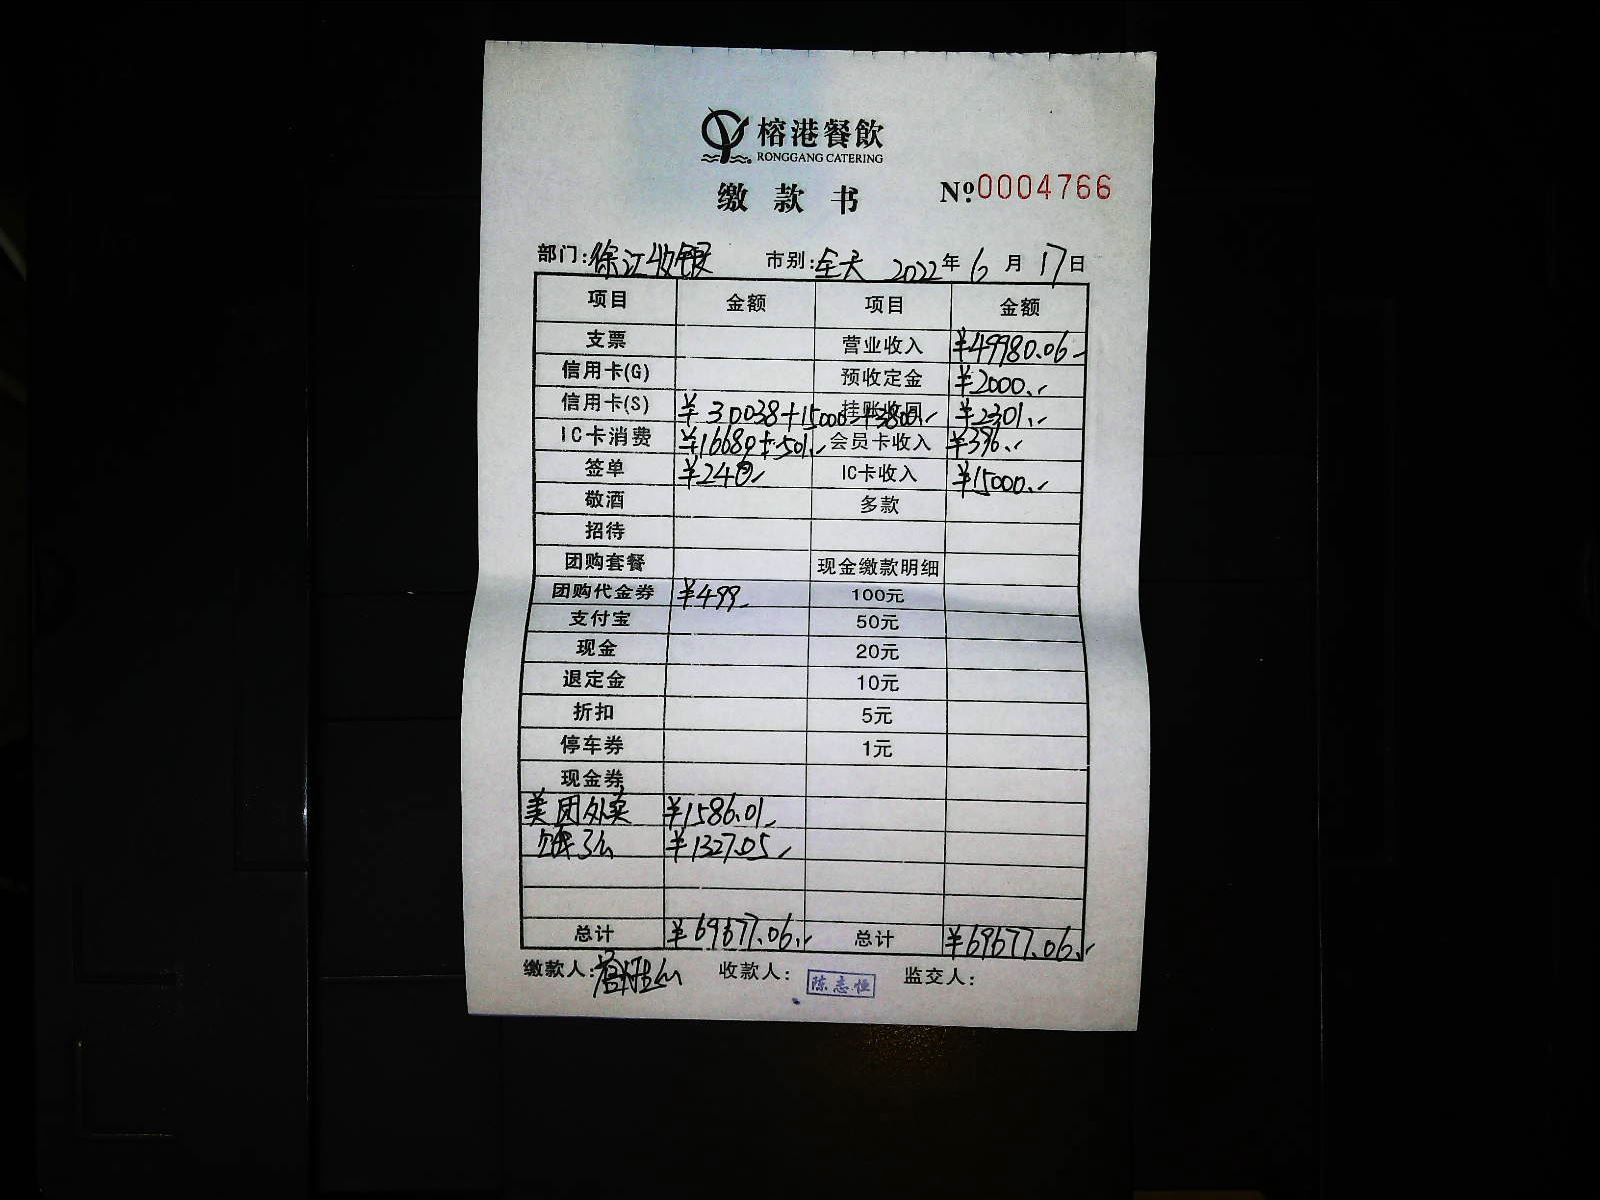 榕港餐飲
RONGGANG CATERING
缴款书 №:0004766
部门:徐汇收银 市别:全天 2022年6月17日
项目 金额 项目 金额
支票 营业收入 ¥49980.06
信用卡(G) 预收定金 ¥2000.
信用卡(S) ¥30038+15000+3800. 挂账收回 ¥2301.
IC卡消费 ¥16680+501. 会员卡收入 ¥396.
签单 ¥246 IC卡收入 ¥15000.
敬酒 多款
招待
团购套餐 现金缴款明细
团购代金券 ¥499 100元
支付宝 50元
现金 20元
退定金 10元
折扣 5元
停车券 1元
现金券
美团外卖 ¥1586.01
饿了么 ¥1327.05
总计 ¥69677.06 总计 ¥69677.06
缴款人: 收款人: 陈志恒 监交人: